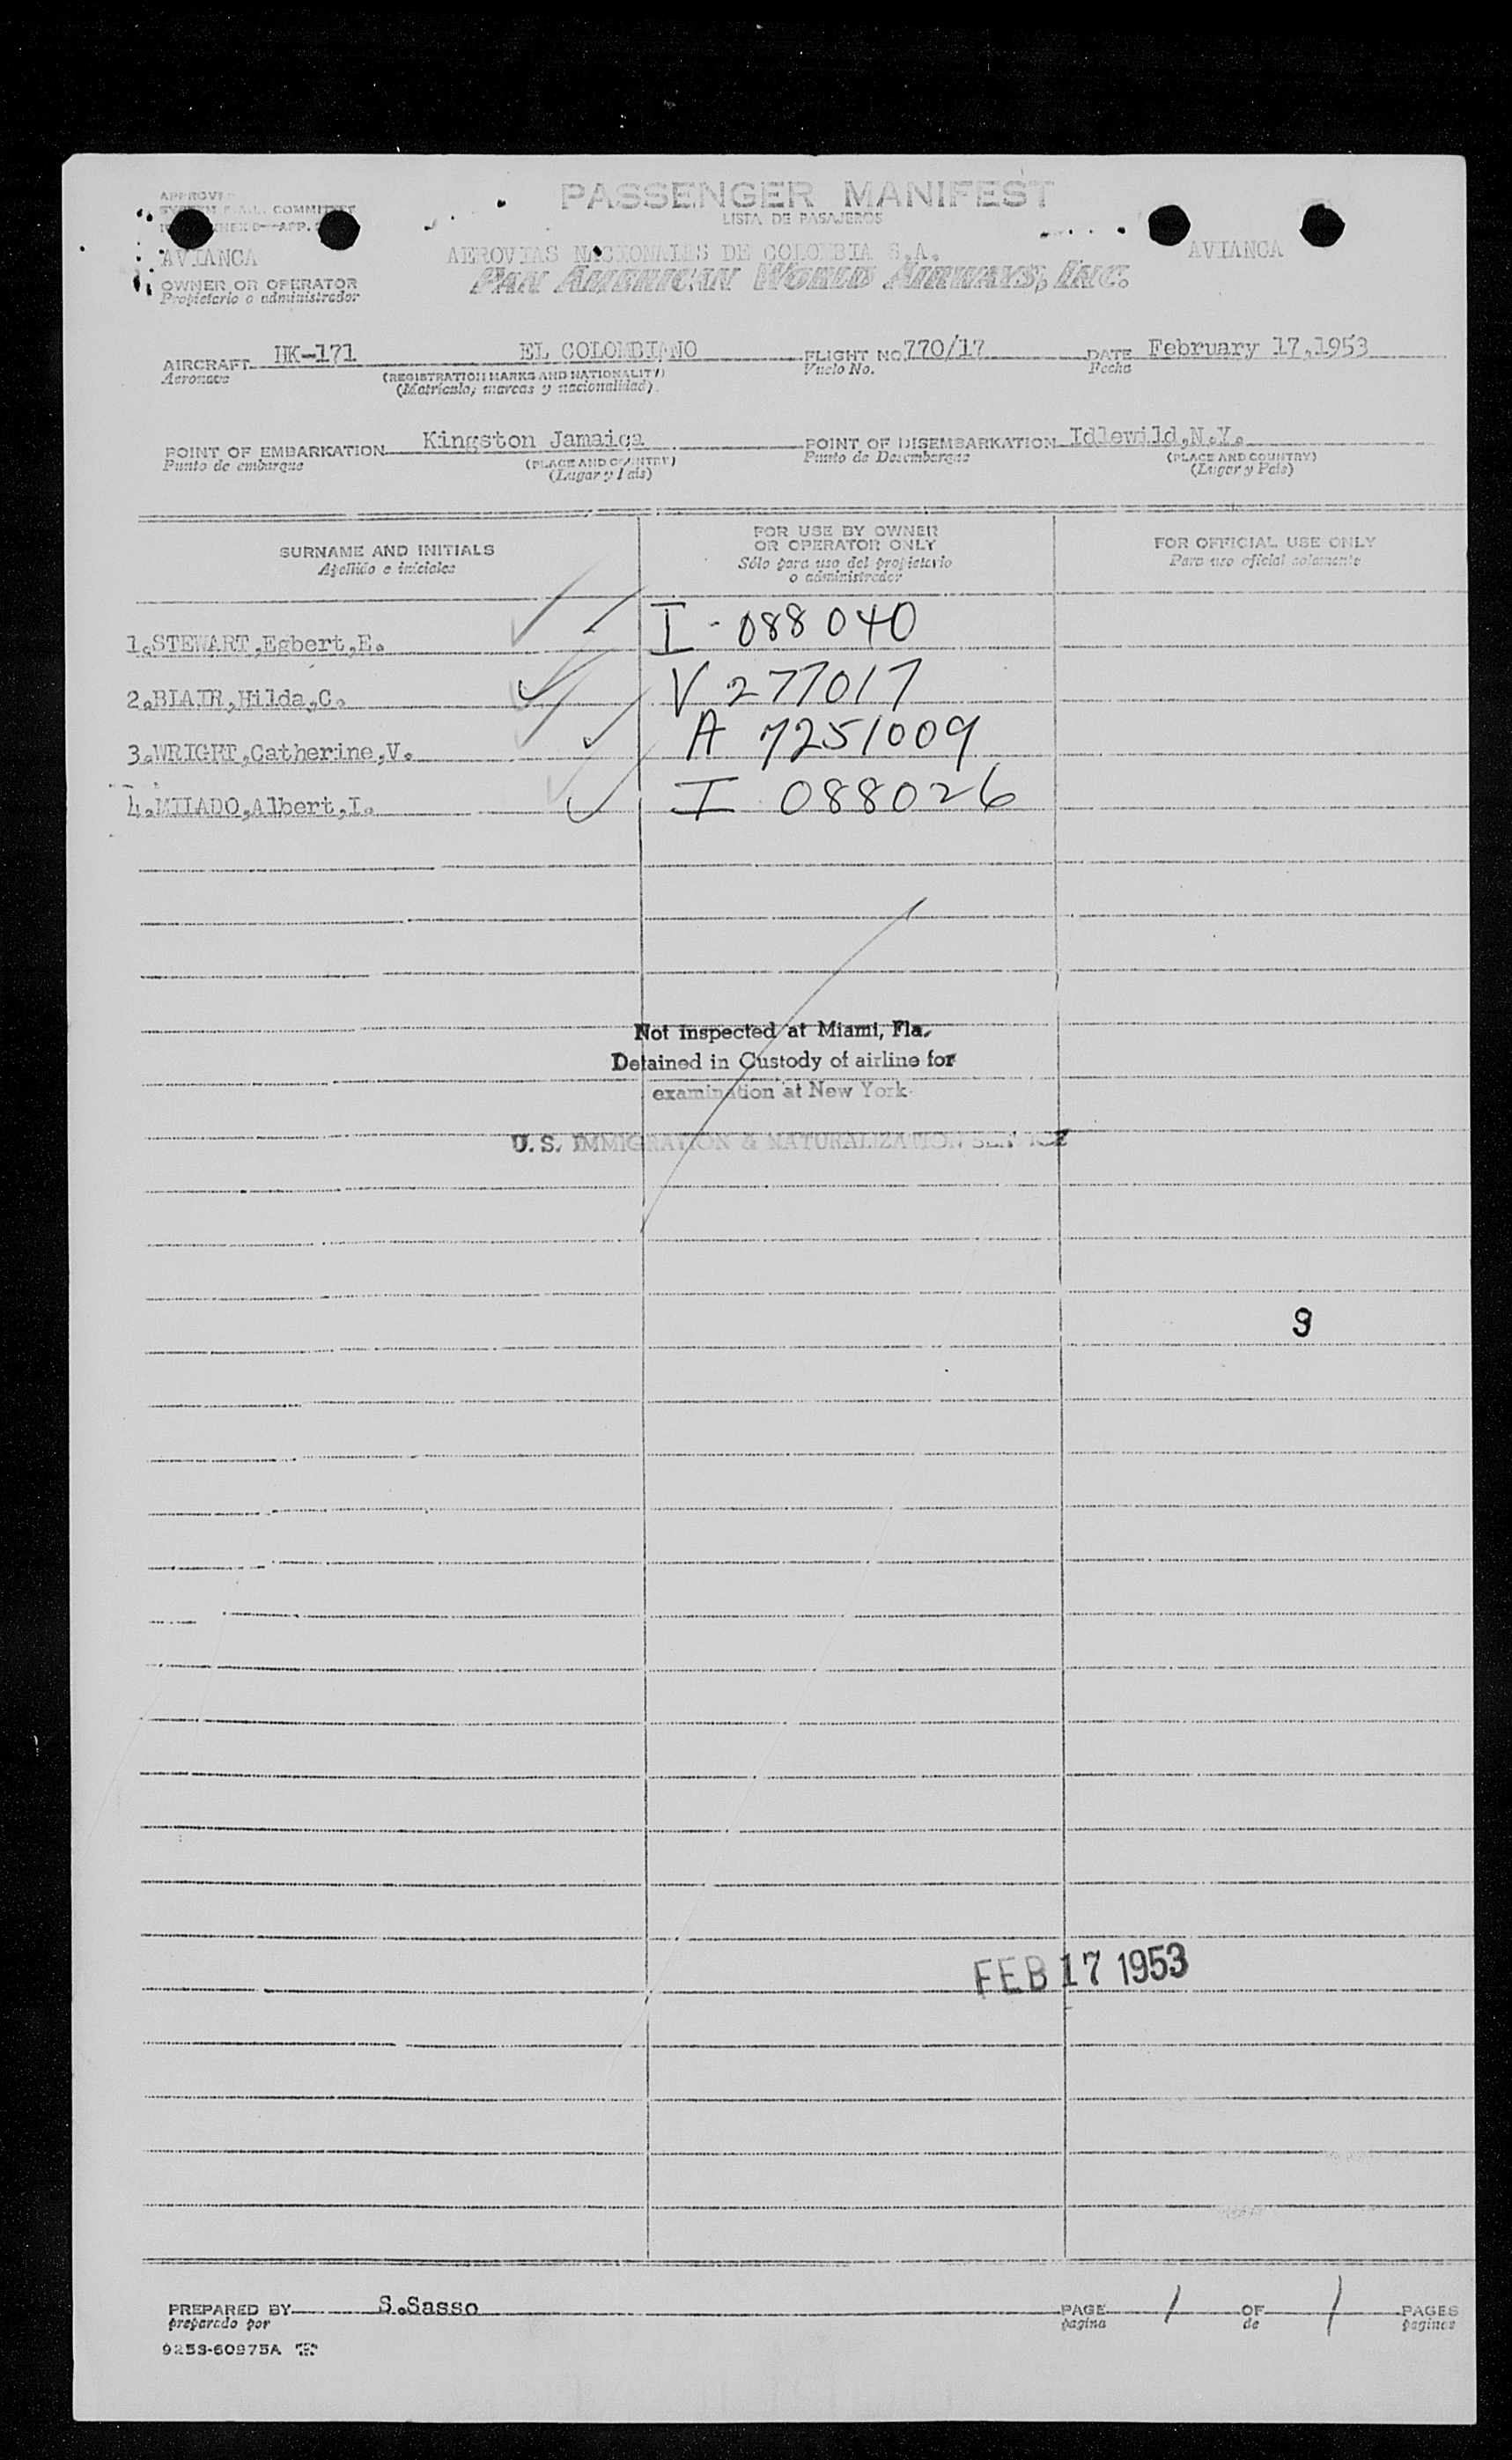 PASSENGER MANIFEST
LISTA DE PASAJEROS
COMMITTEE
APP.
AVIANCA
AEROVIAS NACIONALES DE COLOMBIA S.A.
AVIANCA
OWNER OR OPERATOR
Propietario o administrador
PAN AMERICAN WORLD AIRWAYS, INC.
AIRCRAFT HK-171 EL COLOMBIANO FLIGHT NO. 770/17 DATE February 17,1953
Aeronave (REGISTRATION MARKS AND NATIONALITY) Vuelo No. Fecha
(Matricula, marcas y nacionalidad)
POINT OF EMBARKATION Kingston Jamaica POINT OF DISEMBARKATION Idlewild,N.Y.
Punto de embarque (PLACE AND COUNTRY) Punto de Desembarque (PLACE AND COUNTRY)
(Lugar y País) (Lugar y País)
SURNAME AND INITIALS
Apellido e iniciales
FOR USE BY OWNER
OR OPERATOR ONLY
Sólo para uso del propietario
o administrador
FOR OFFICIAL USE ONLY
Para uso oficial solamente
1.STEWART,Egbert,E. I-088040
2.BLAIR,Hilda,C. V 277017
3.WRIGHT,Catherine,V. A 7251009
4.MILADO,Albert,I. I 088026
Not inspected at Miami, Fla.
Detained in Custody of airline for
examination at New York
U. S. IMMIGRATION & NATURALIZATION SERVICE
9
FEB 17 1953
PREPARED BY S.Sasso PAGE 1 OF 1 PAGES
preparado por pagina de paginas
9253-60975A